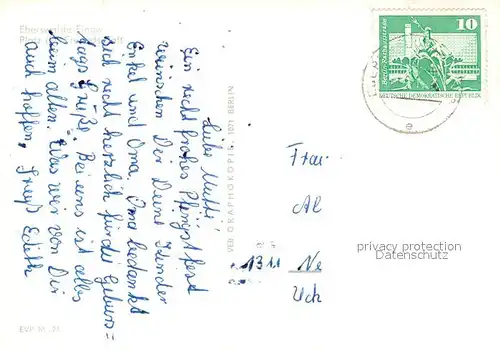 Eberswalde-Finow
Liebe Mutti!
Ein recht frohes Pfingstfest
wünschen Dir Deine Kinder
Enkel und Oma. Oma bedankt
sich recht herzlich für die Geburts=
tags Grüße. Bei uns ist alles
beim alten. Was wir von Dir
auch hoffen, Gruß Edith
VEB GRAPHOKOPIE, 1071 BERLIN
10
DEUTSCHE DEMOKRATISCHE REPUBLIK
e
Frau
Al
1311 Ne
Uch
privacy protection
Datenschutz